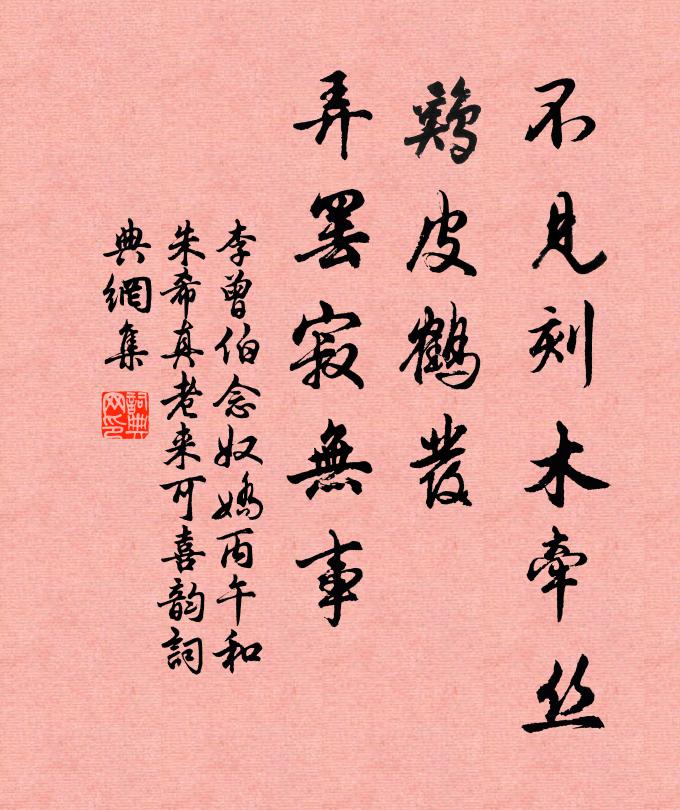 不見刻木牽丝
鷄皮鶴发
弄罢寂無事
李曾伯念奴嬌丙午和
朱希真老来可喜韵詞
典網集
詞典
网印